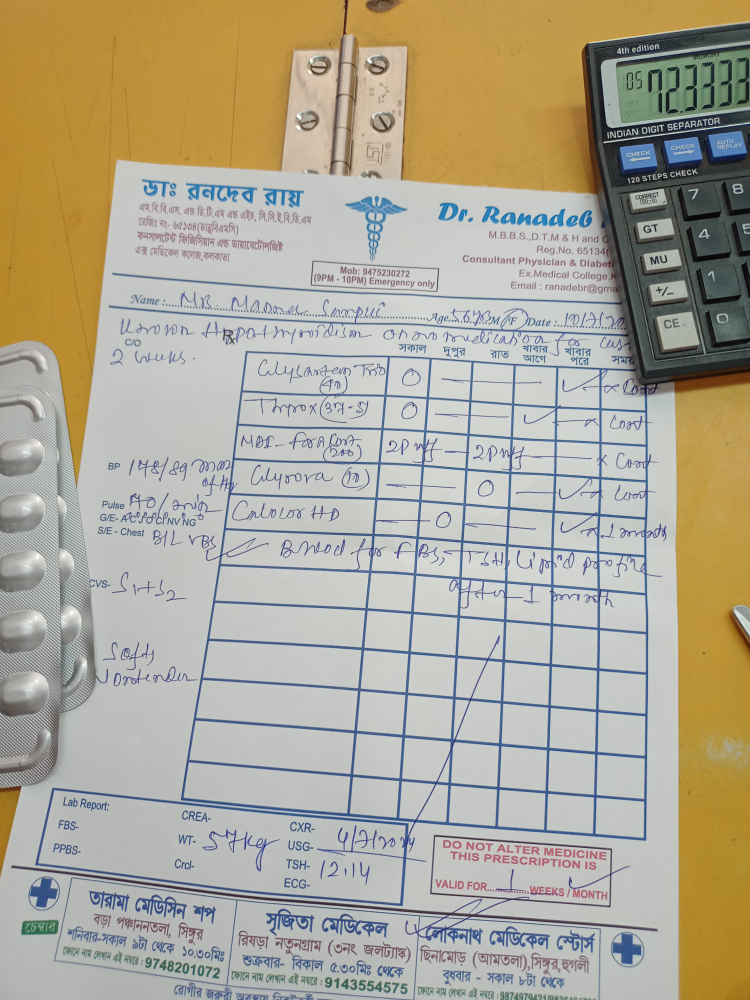 4th edition
MEMORY
05 72.3333
INDIAN DIGIT SEPARATOR
CHECK
CHECK
AUTO REPLAY
120 STEPS CHECK
CORRECT
7
8
GT
4
5
MU
+/-
CE
ডাঃ রনদেব রায়
এম.বি.বি.এস. এন্ড ডি.টি.এম এন্ড এইচ, সি.সি.ই.বি.ডি.এম
রেজিঃ নং- ৬৫১৩৪(ডাব্লুবিএমসি)
কনসালটেন্ট ফিজিসিয়ান এন্ড ডায়াবেটোলজিষ্ট
এক্স মেডিকেল কলেজ,কলকাতা
Mob: 9475230272
(9PM - 10PM) Emergency only
Dr. Ranadeb
M.B.B.S.,D.T.M & H and
Reg.No. 65134(
Consultant Physician & Diabet
Ex.Medical College,K
Email : ranadebr@gma
Name: Age: 56 M/F Date:
Known on no medication for
2 weeks.
C/O
Rx
সকাল দুপুর রাত খাবার আগে খাবার পরে সময়
(40) O — — — ✓ x Cont
Thyrox (37-5) O — — ✓ — x Cont
MDI- (200) 2 Puff — 2 Puff — x Cont
(10) — — O — ✓ x Cont
— O — — ✓ x 1 month
Blood for FBS, TSH, Lipid profile
after 1 month
BP 178/89 mm of Hg
Pulse 70/min
G/E-
S/E - Chest B/L VBS
CVS- S1+S2
Soft,
nontender
Lab Report:
FBS-
PPBS-
CREA-
WT- 57kg
Crcl-
CXR-
USG- 4/7/2024
TSH- 12.14
ECG-
DO NOT ALTER MEDICINE
THIS PRESCRIPTION IS
VALID FOR 1 WEEKS / MONTH
চেম্বার
তারামা মেডিসিন শপ
বড়া পঞ্চাননতলা, সিঙ্গুর
শনিবার-সকাল ৯টা থেকে ১০.৩০মিঃ
ফোনে নাম লেখান এই নম্বরে : 9748201072
সৃজিতা মেডিকেল
রিষড়া নতুনগ্রাম (৩নং জলট্যাঙ্ক)
শুক্রবার- বিকাল ৫.৩০মিঃ থেকে
ফোনে নাম লেখান এই নম্বরে : 9143554575
লোকনাথ মেডিকেল স্টোর্স
ছিনামোড় (আমতলা),সিঙ্গুর,হুগলী
বুধবার - সকাল ৮টা থেকে
ফোনে নাম লেখান এই নম্বরে :
রোগীর জরুরী